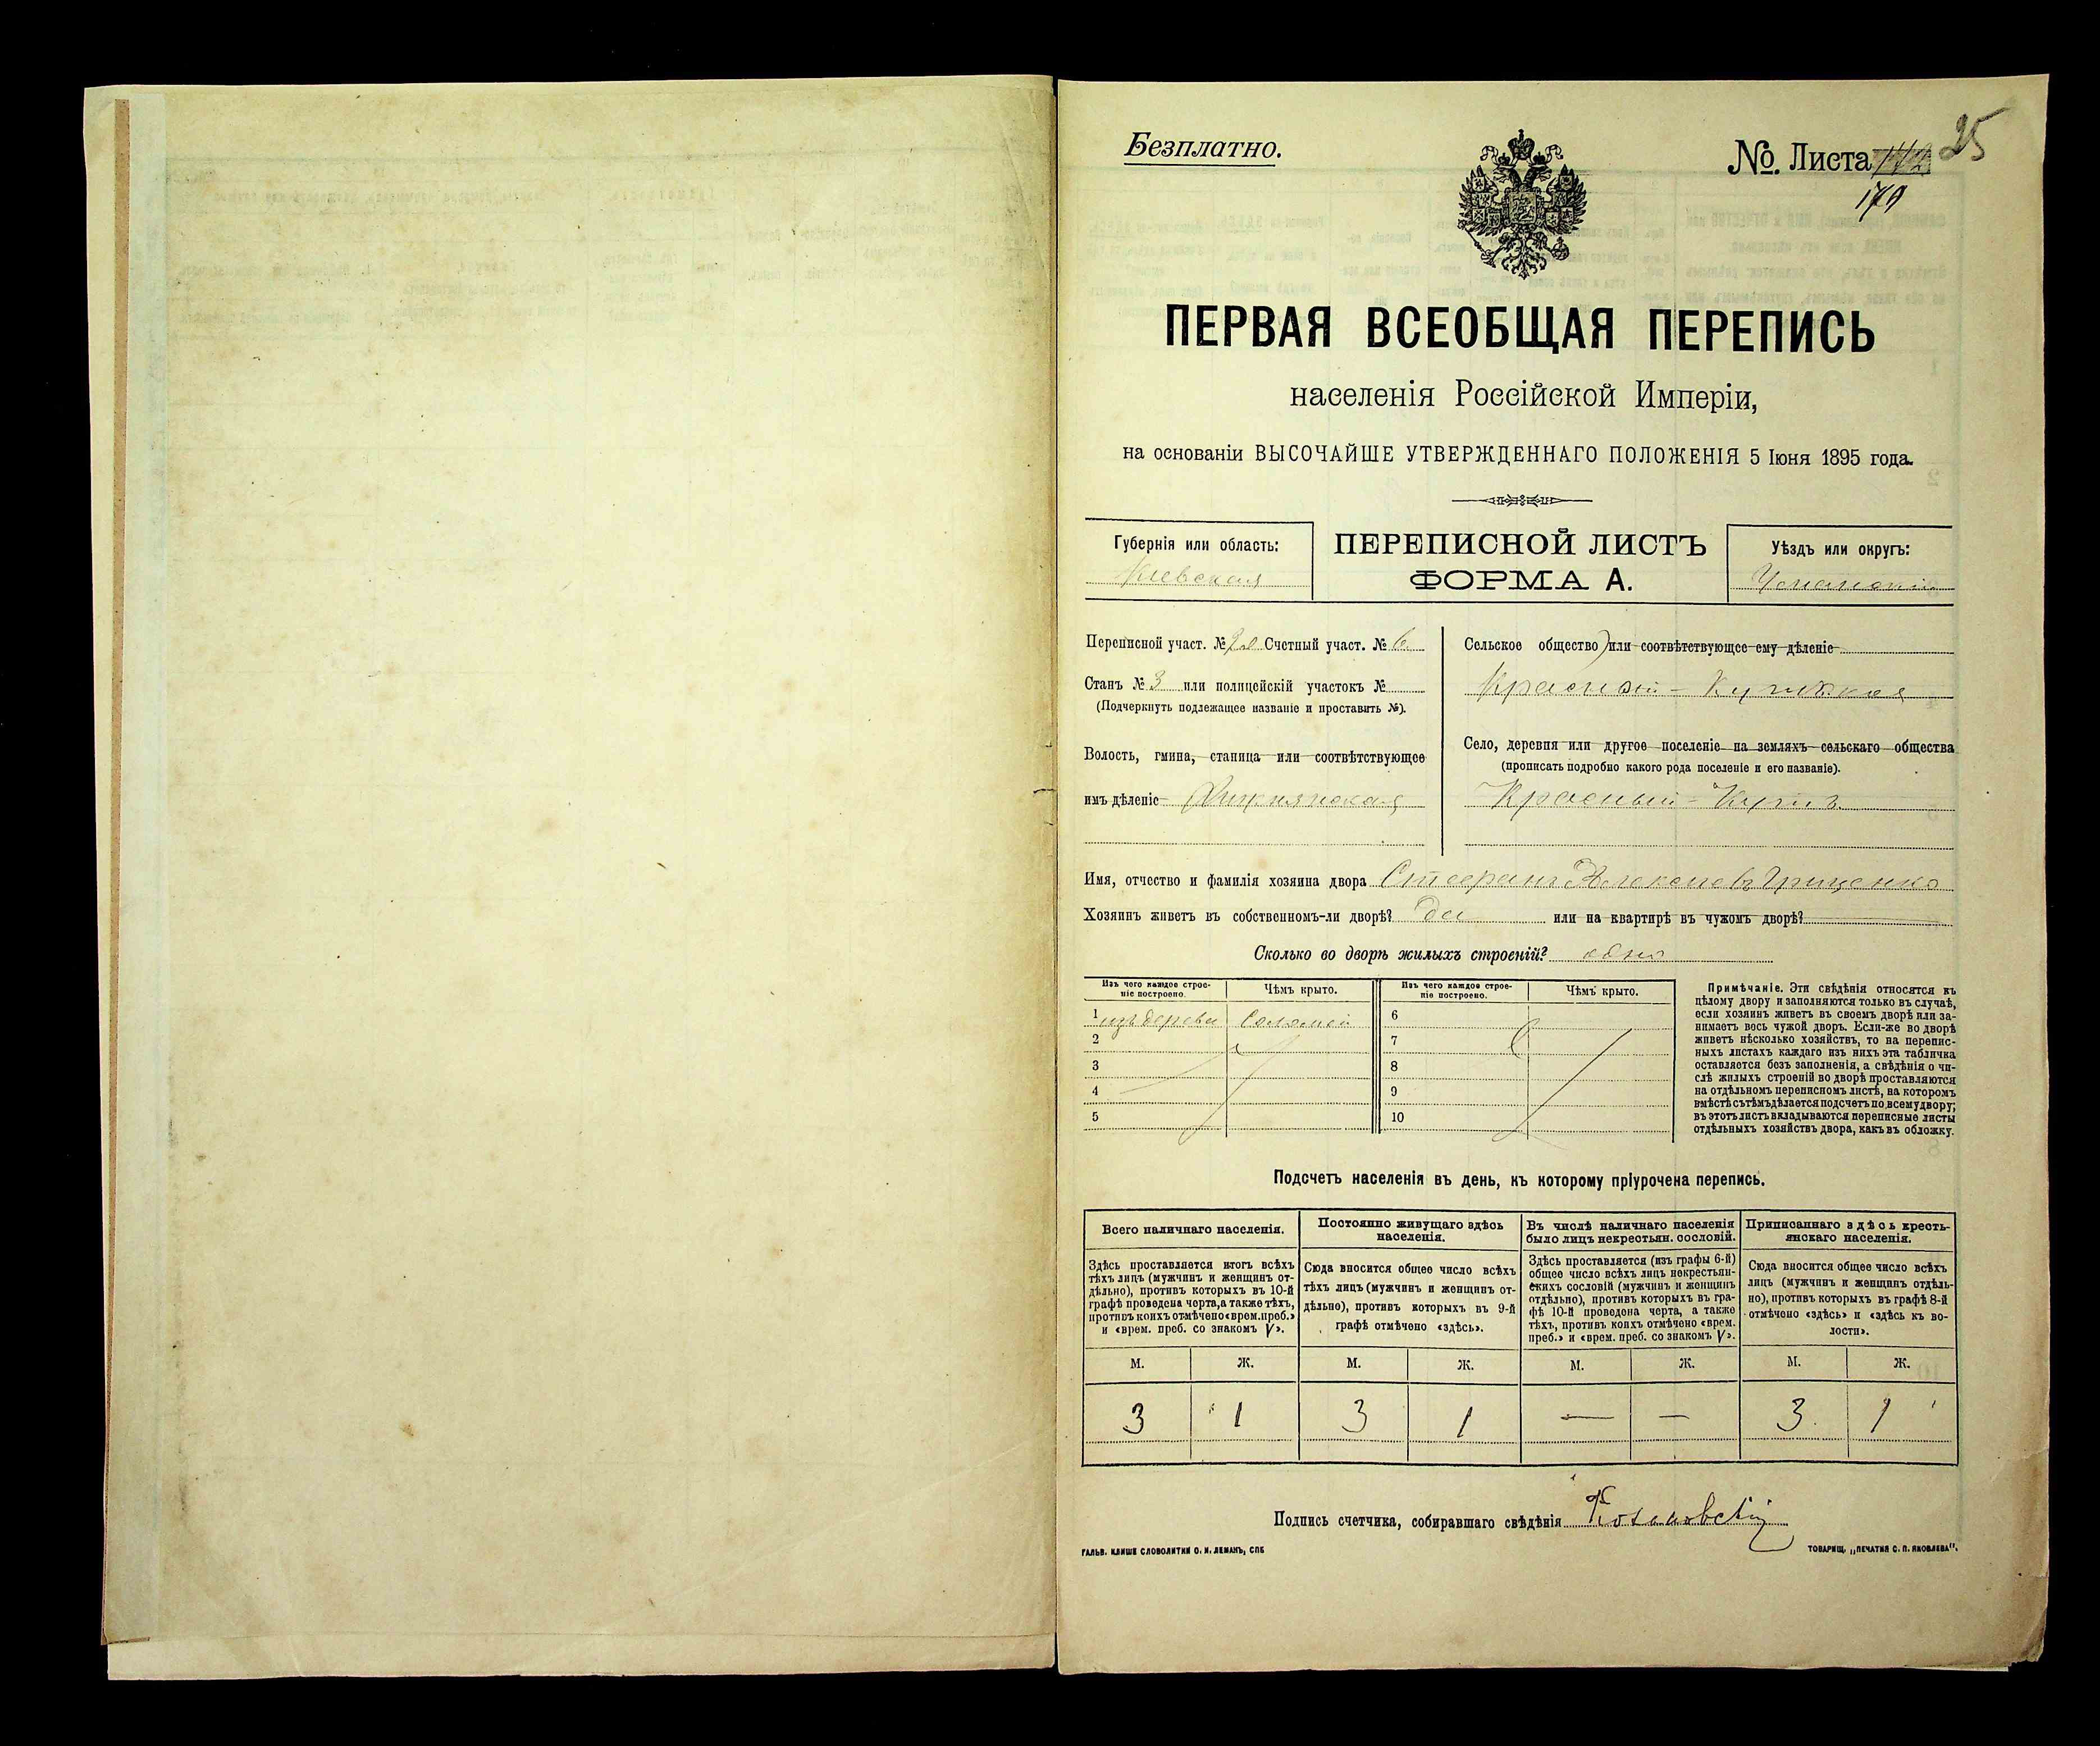 Безплатно.
№. Листа
25
179
ПЕРВАЯ ВСЕОБЩАЯ ПЕРЕПИСЬ
населенія Россійской Имперіи,
на основаніи ВЫСОЧАЙШЕ УТВЕРЖДЕННАГО ПОЛОЖЕНІЯ 5 Іюня 1895 года.
Губернія или область:
Кіевская
ПЕРЕПИСНОЙ ЛИСТЪ
ФОРМА А.
Уѣздъ или округъ:
Уманскій
Переписной участ. № Счетный участ. № 6
Станъ № 3 или полицейскій участокъ №
(Подчеркнуть подлежащее названіе и проставить №).
Волость, гмина, станица или соотвѣтствующее
имъ дѣленіе
Сельское общество) или соотвѣтствующее ему дѣленіе
Красный - Кутская
Село, деревня или другое поселеніе на земляхъ сельскаго общества
(прописать подробно какого рода поселеніе и его названіе).
Красный - Кутъ
Имя, отчество и фамилія хозяина двора Стефанъ Алексѣевъ Грищенко
Хозяинъ живетъ въ собственномъ-ли дворѣ? Да или на квартирѣ въ чужомъ дворѣ?
Сколько во дворѣ жилыхъ строеній? одно
Изъ чего каждое строе-
ніе построено.
Чѣмъ крыто.
Изъ чего каждое строе-
ніе построено.
Чѣмъ крыто.
1 изъ дерева Соломой 6
2 7
3 8
4 9
5 10
Примѣчаніе. Эти свѣдѣнія относятся къ
цѣлому двору и заполняются только въ случаѣ,
если хозяинъ живетъ въ своемъ дворѣ или за-
нимаетъ весь чужой дворъ. Если-же во дворѣ
живетъ нѣсколько хозяйствъ, то на перепис-
ныхъ листахъ каждаго изъ нихъ эта табличка
оставляется безъ заполненія, а свѣдѣнія о чи-
слѣ жилыхъ строеній во дворѣ проставляются
на отдѣльномъ переписномъ листѣ, на которомъ
вмѣстѣ съ тѣмъ дѣлается подсчетъ по всему двору;
въ этотъ листъ вкладываются переписные листы
отдѣльныхъ хозяйствъ двора, какъ въ обложку.
Подсчетъ населенія въ день, къ которому пріурочена перепись.
Всего наличнаго населенія.
Здѣсь проставляется итогъ всѣхъ
тѣхъ лицъ (мужчинъ и женщинъ от-
дѣльно), противъ которыхъ въ 10-й
графѣ проведена черта, а также тѣхъ,
противъ коихъ отмѣчено «врем. преб.»
и «врем. преб. со знакомъ V».
Постоянно живущаго здѣсь
населенія.
Сюда вносится общее число всѣхъ
тѣхъ лицъ (мужчинъ и женщинъ от-
дѣльно), противъ которыхъ въ 9-й
графѣ отмѣчено «здѣсь».
Въ числѣ наличнаго населенія
было лицъ некрестьян. сословій.
Здѣсь проставляется (изъ графы 6-й)
общее число всѣхъ лицъ некрестьян-
скихъ сословій (мужчинъ и женщинъ
отдѣльно), противъ которыхъ въ гра-
фѣ 10-й проведена черта, а также
тѣхъ, противъ коихъ отмѣчено «врем.
преб.» и «врем. преб. со знакомъ V».
Приписаннаго здѣсь кресть-
янскаго населенія.
Сюда вносится общее число всѣхъ
лицъ (мужчинъ и женщинъ отдѣль-
но), противъ которыхъ въ графѣ 8-й
отмѣчено «здѣсь» и «здѣсь къ во-
лости».
М. Ж. М. Ж. М. Ж. М. Ж.
3 1 3 1 — — 3 1
Подпись счетчика, собиравшаго свѣдѣнія
ГАЛЬВ. КЛИШЕ СЛОВОЛИТНИ О. И. ЛЕМАНЪ, СПБ
ТОВАРИЩ. „ПЕЧАТНЯ С. П. ЯКОВЛЕВА".